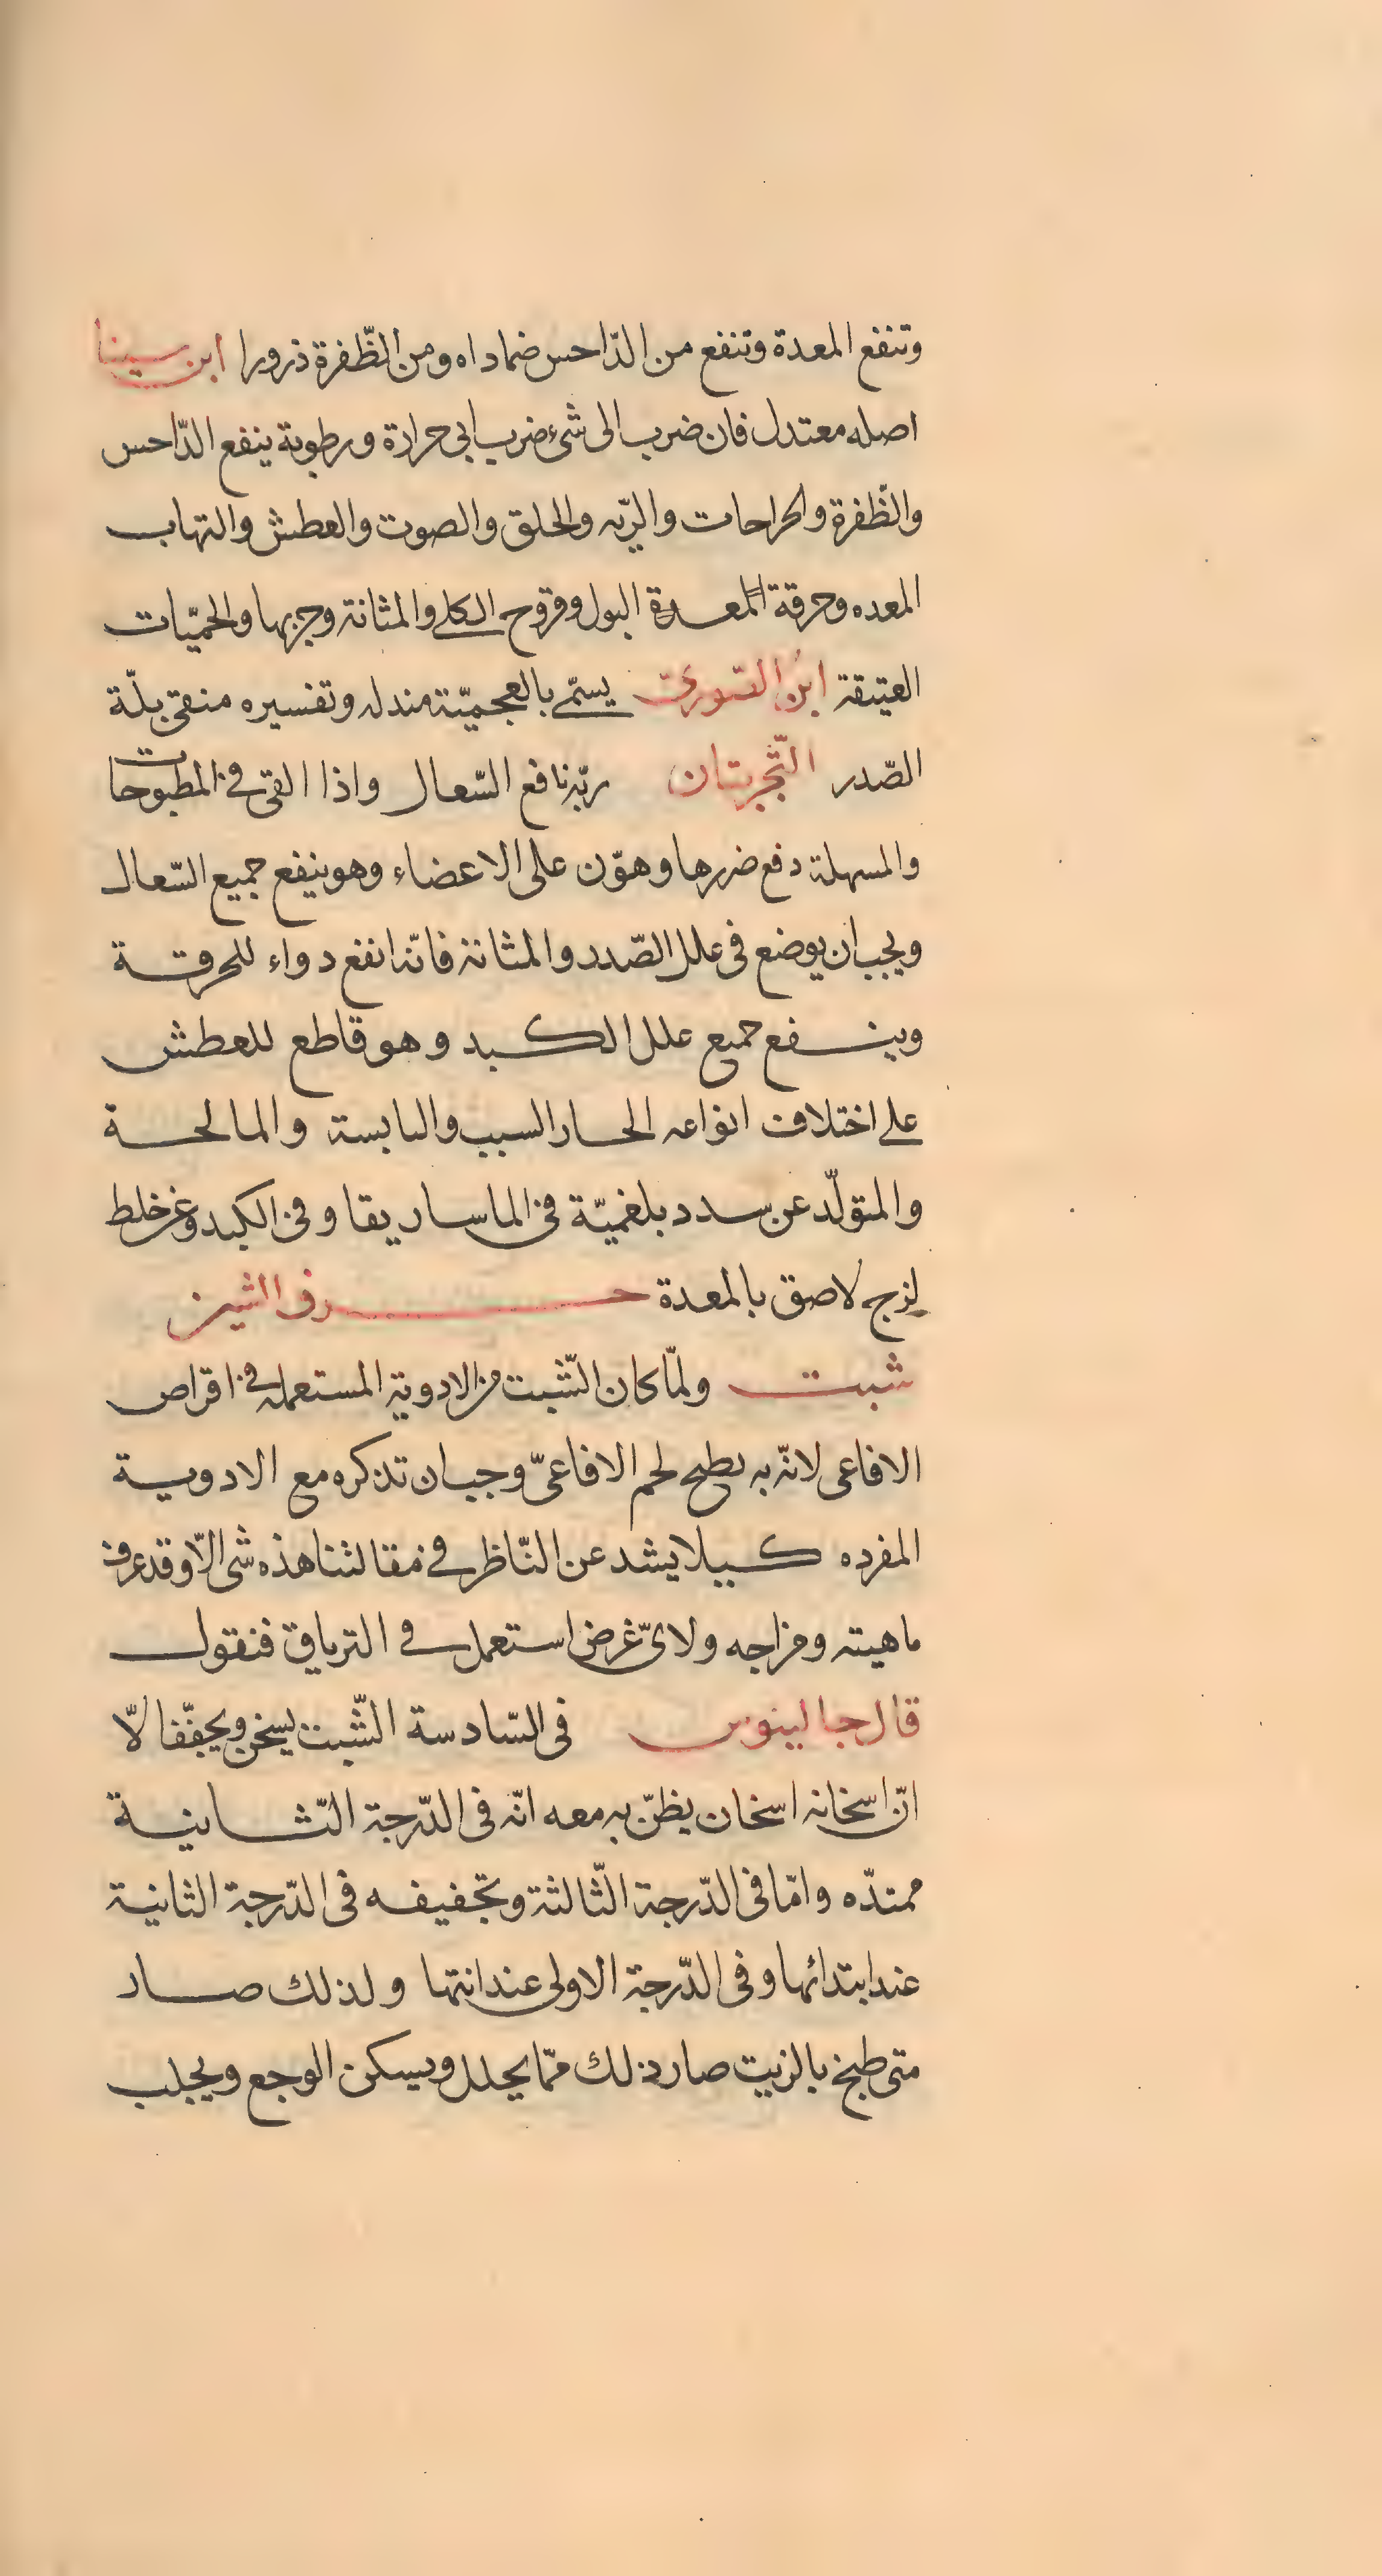 وتنفع المعدة وتنفع من الدّاحس ضماداه ومن الظّفرة ذرورا ابن سينا
اصله معتدل فان ضرب الى شئ ضرب ابى حرارة ورطوبة ينفع الدّاحس
والظّفرة والجراحات والريّه والحلق والصوت والعطش والتهاب
المعده وحرقة المعدة البول وقروح الكلى والمثانة وجربها والحميّات
العتيقة ابن السّورىّ يسمّى بالعجميّة مندله وتفسيره منقى بلّة
الصّدر التّجربتان ربّه نافع السّعال واذا القى فى المطبوحات
والمسهلة دفع ضررها وهوّن على الاعضاء وهو ينفع جميع السّعال
ويجب ان يوضع فى علل الصّدر والمثانة فانّه انفع دواء للحرقة
وينفع جميع علل الكبد وهو قاطع للعطش
على اختلاف انواعه الحار السبب واليابسة والمالحة
والمتولّد عن سدد بلغميّة فى الماساريقا وفى الكبد وعن خلط
لزج لاصق بالمعدة حرف الشين
شبت ولمّا كان الشّبت من الادوية المستعمله فى اقراص
الافاعى لانّه به يطبح لحم الافاعىّ وجب ان تذكره مع الادوية
المفرده كيلا يشد عن النّاظر فى مقالتنا هذه شى الّا وقد عرف
ماهيته ومزاجه ولاىّ غرض استعمل فى الترياق فنقول
قال جالينوس فى السّادسة الشّبت يسخن ويجفّف الّا
انّ اسخانه اسخان يظنّ به معه انّه فى الدّرجة الثّانية
ممتدّه وامّا فى الدّرجة الثّالثة وتجفيفه فى الدّرجة الثانية
عند ابتدائها وفى الدّرجة الاولى عند انتها ولذلك صار
متى طبخ بالزيت صار ذلك ممّا يحلل ويسكن الوجع ويجلب